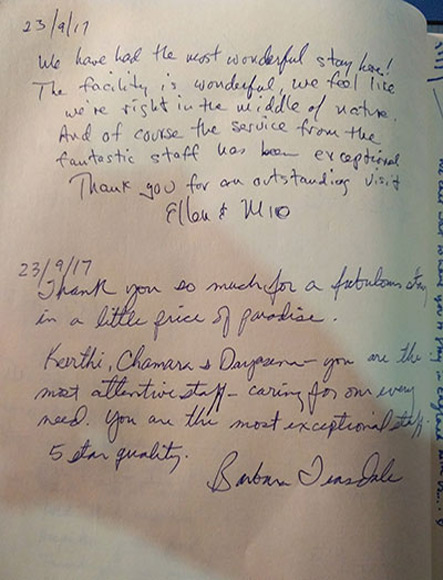 23/9/17
We have had the most wonderful stay here!
The facility is wonderful, we feel like
we're right in the middle of nature.
And of course the service from the
fantastic staff has been exceptional
Thank you for an outstanding visit
Ellen &
23/9/17
Thank you so much for a fabulous stay
in a little piece of paradise.
Keerthi, Chamara & Dayasena - you are the
most attentive staff - caring for our every
need. You are the most exceptional staff.
5 star quality.
Barbara Teasdale